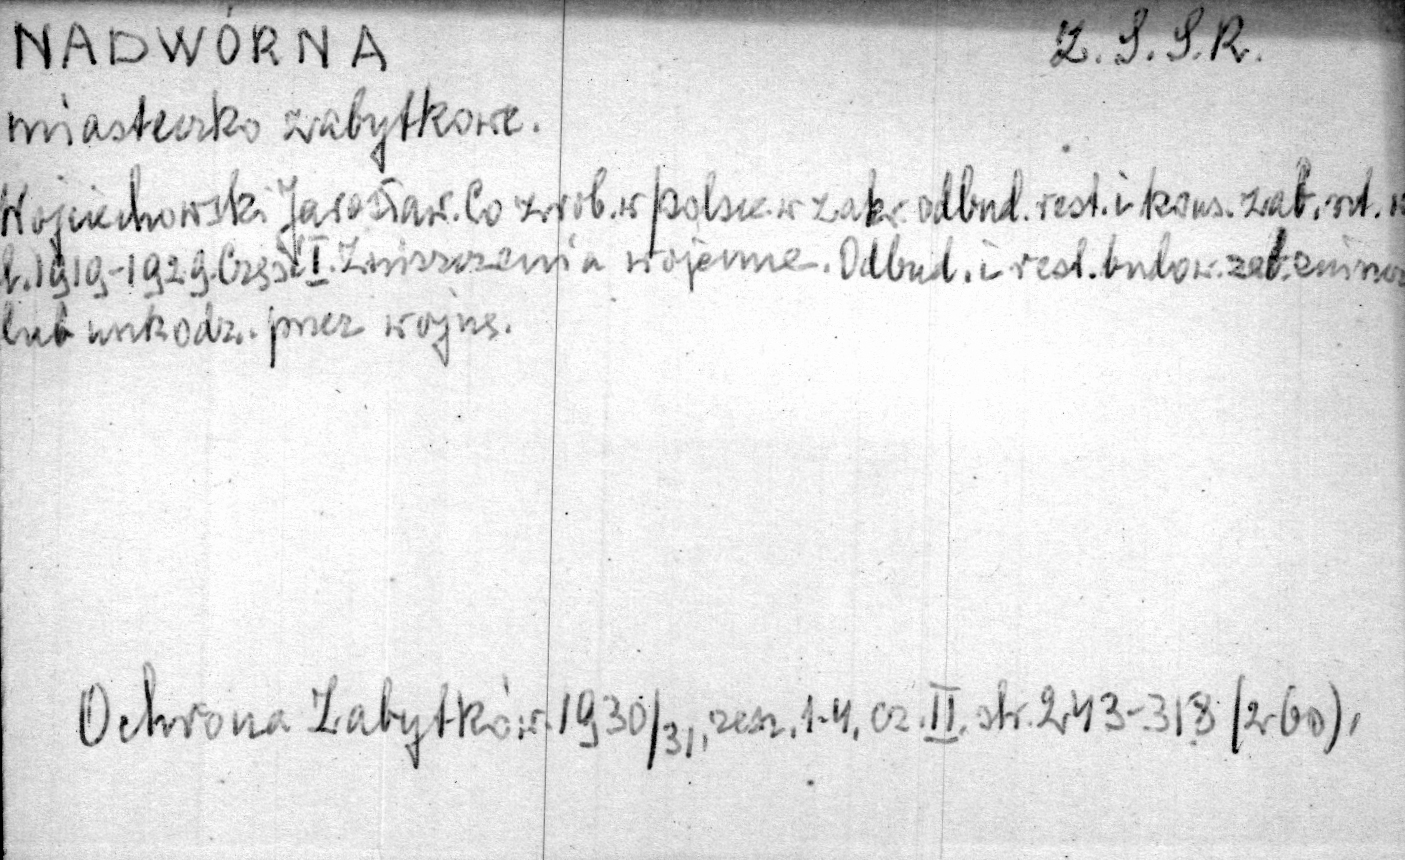 NADWÓRNA Z.S.S.R.
miasteczko zabytkowe.
Wojciechowski Jarosław. Co zrob. w Polsce w zakr. odbud. rest. i kons. zab. szt. w
l. 1919-1929. Część I. Zniszczenia wojenne. Odbud. i rest. budow. zab. znisz
lub uszkodz. przez wojnę.
Ochrona Zabytków. 1930/31, zesz. 1-4, cz. II. str. 243-318 (260),